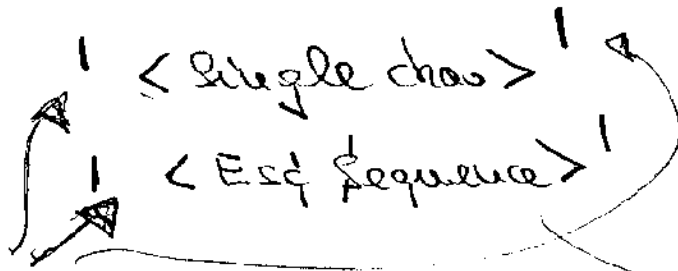 ' <Single char> '
' <Esc Sequence> '